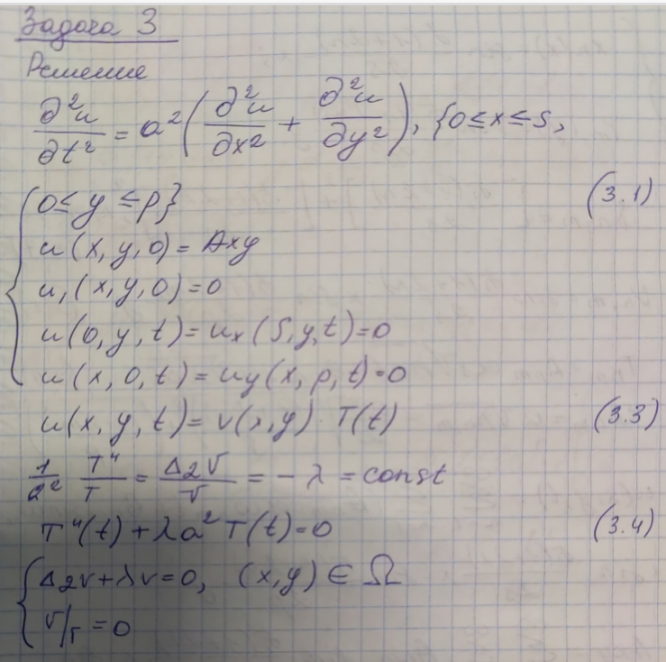 Задача 3
Решение
∂²u/∂t² = a²(∂²u/∂x² + ∂²u/∂y²), {0≤x≤s,
0≤ y ≤p} (3.1)
u(x,y,0)=Axy
u,(x,y,0)=0
u(0,y,t)=uₓ(s,y,t)=0
u(x,0,t)=uy(x,p,t)=0
u(x,y,t)=v(x,y) T(t) (3.3)
1/a² T"/T = Δ₂v/v = -λ = const
T"(t)+λa²T(t)=0 (3.4)
Δ₂v+λv=0, (x,y)∈Ω
v/г =0